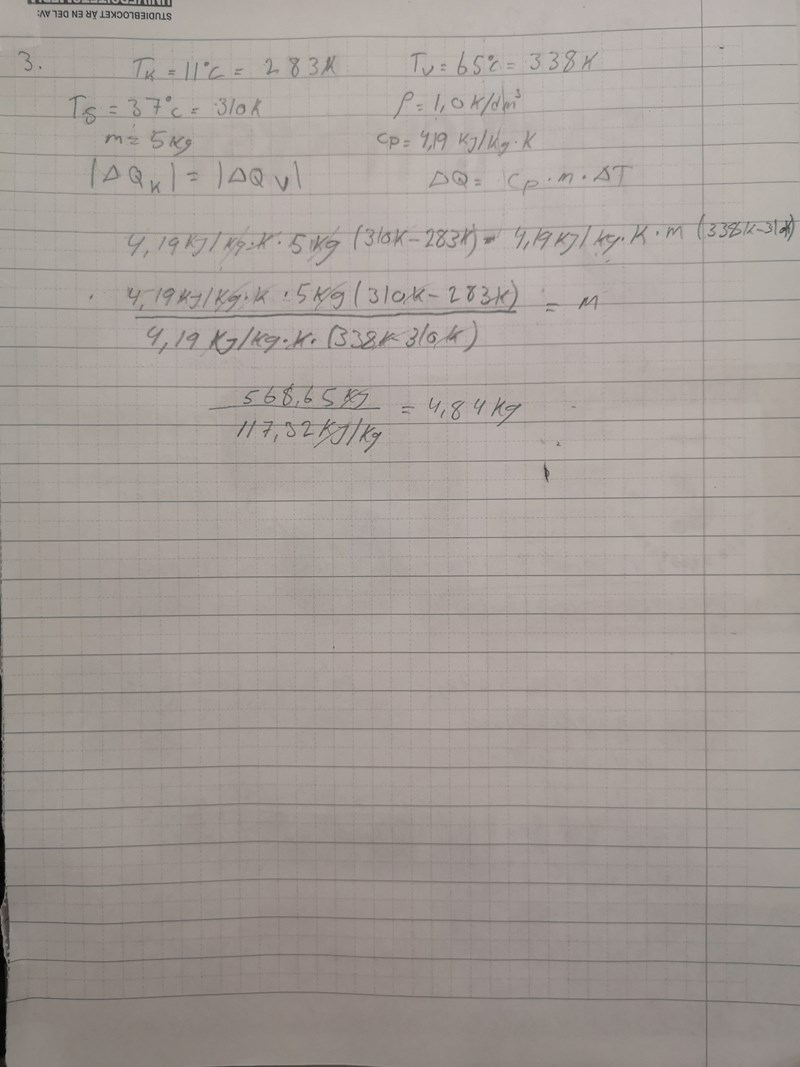 STUDIEBLOCKET ÄR EN DEL AV:
3. T_K = 11°C = 283K T_V = 65°C = 338K
T_S = 37°C = 310K ρ = 1,0 K/dm³
m = 5 Kg Cp = 4,19 KJ/Kg·K
|ΔQ_K| = |ΔQ_V| ΔQ = Cp · m · ΔT
4,19 KJ/Kg·K · 5 Kg (310K - 283K) = 4,19 KJ/Kg·K · m (338K-310K)
4,19 KJ/Kg·K · 5 Kg (310K - 283K) = m
4,19 KJ/Kg·K · (338K-310K)
568,65 KJ = 4,84 Kg
117,32 KJ/Kg